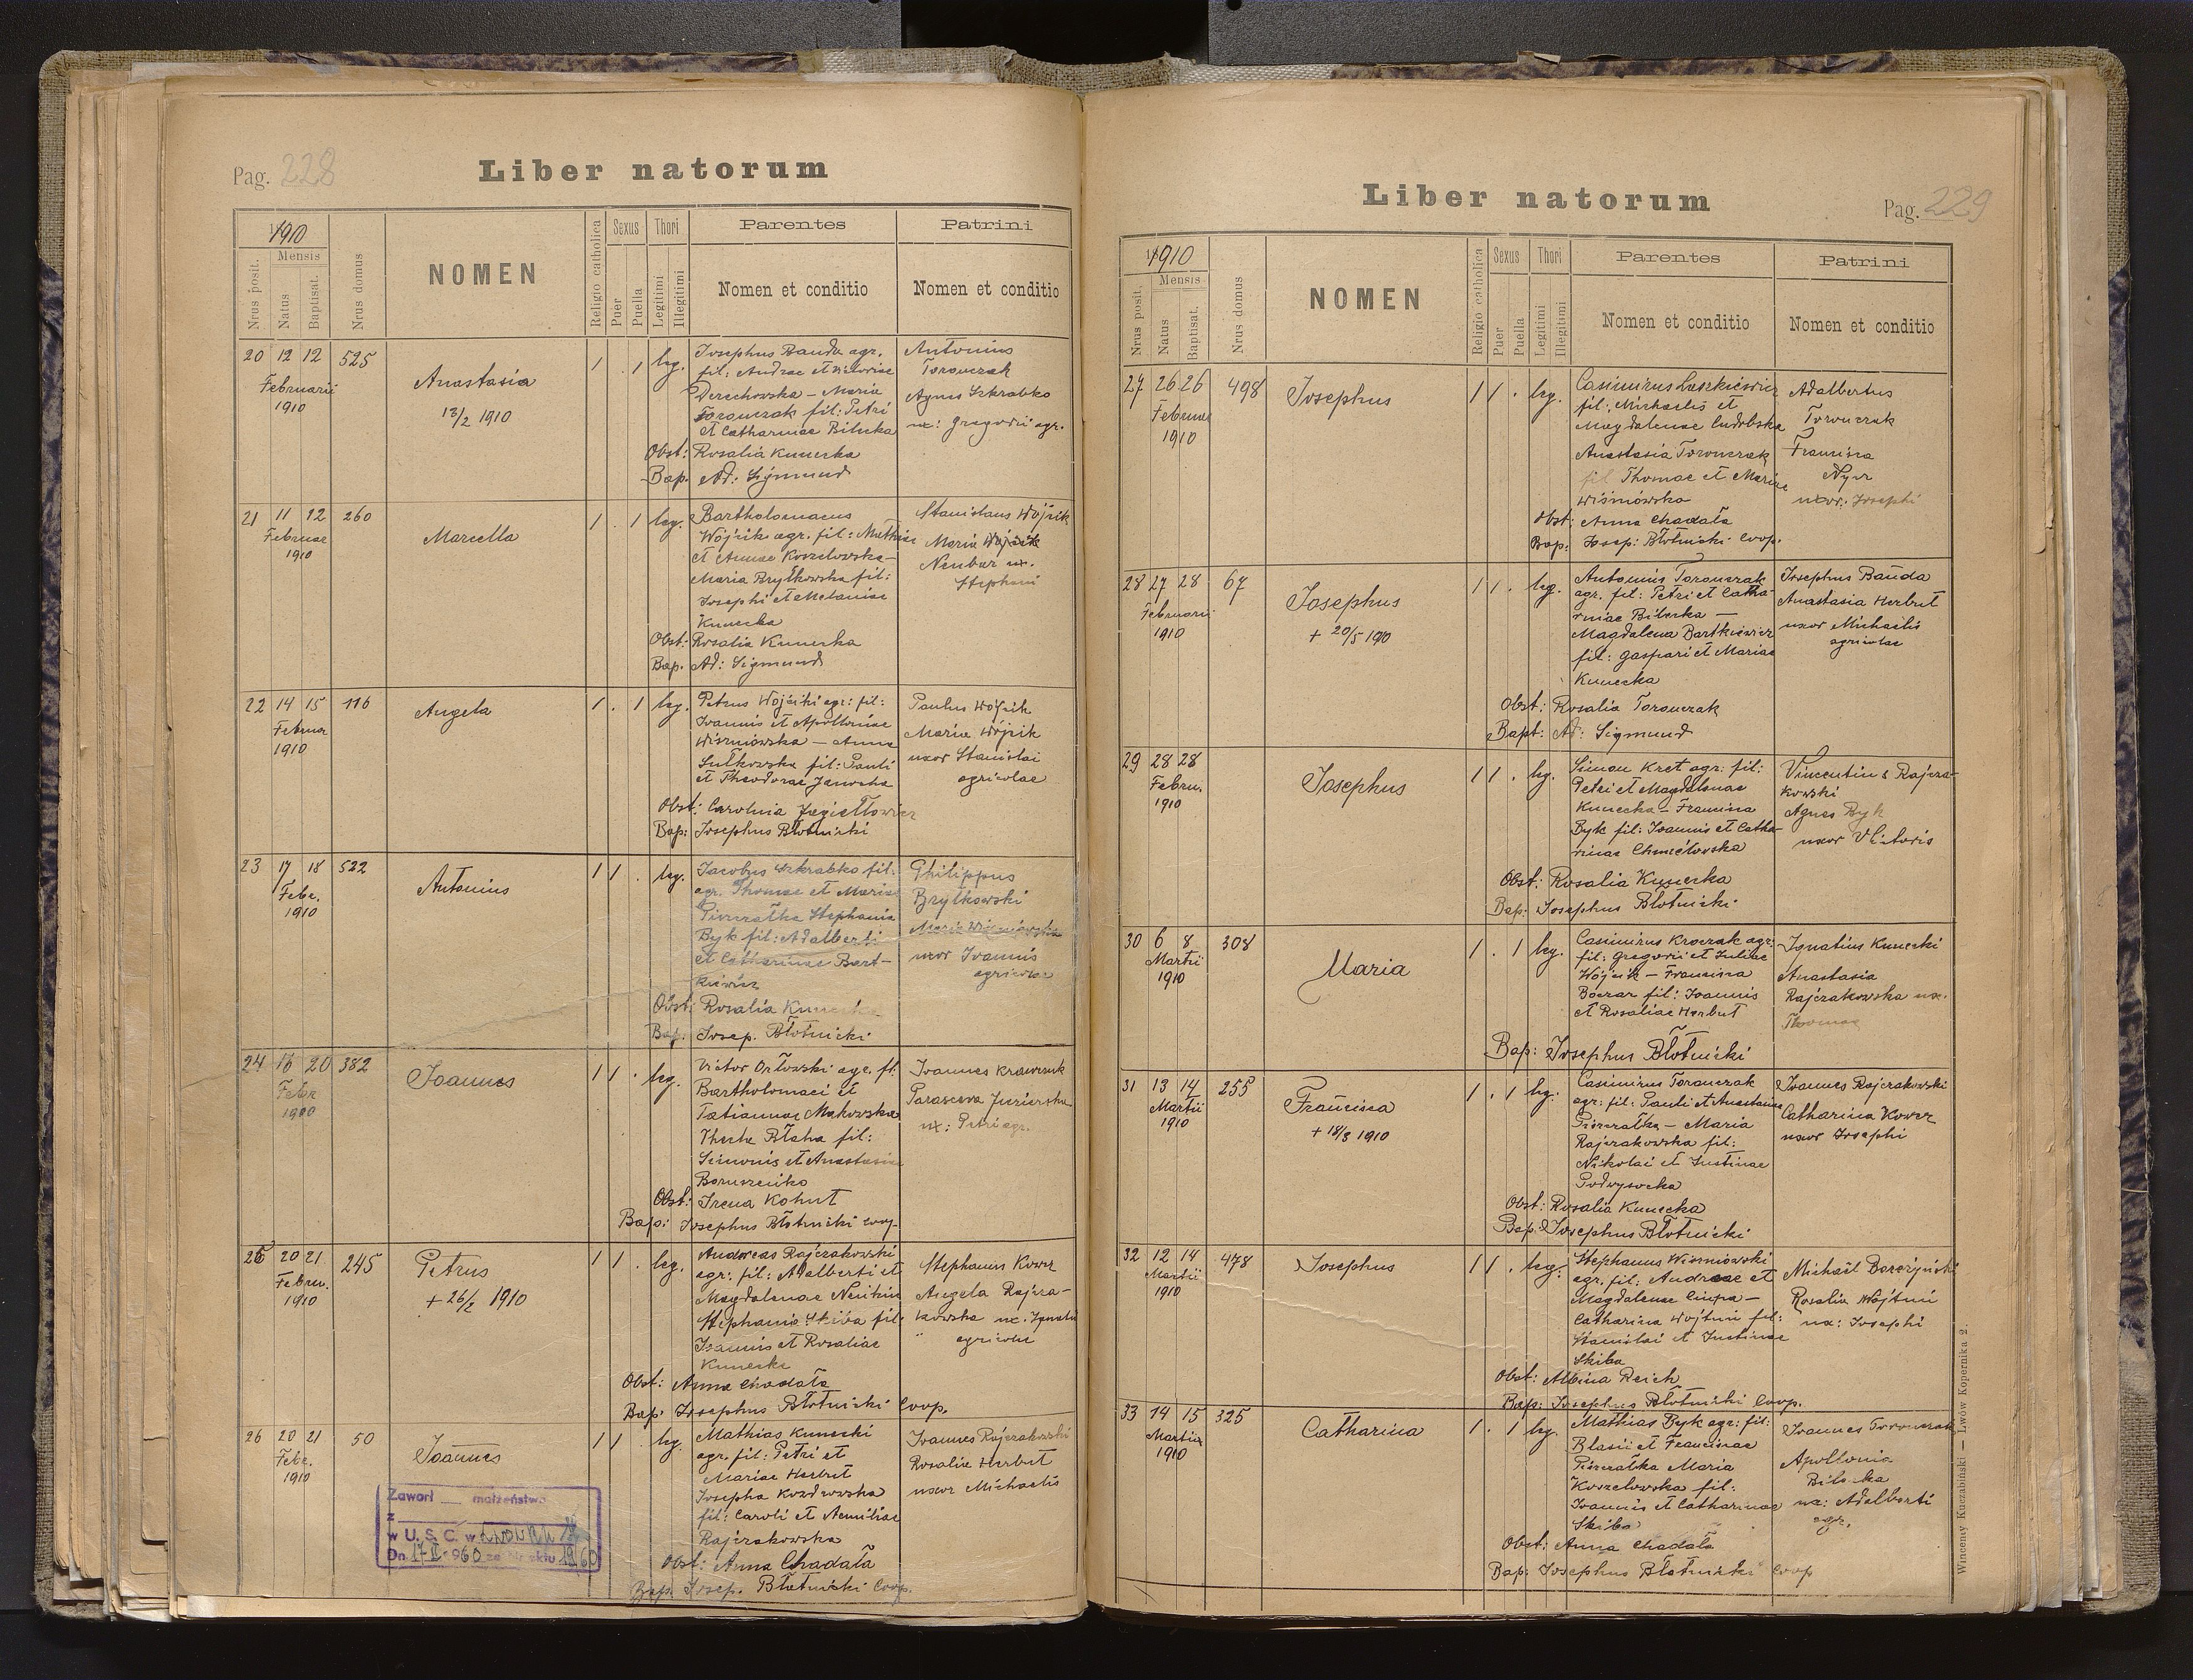 Pag. 228
Liber natorum
1910
Mensis
Nrus posit.
Natus
Baptisat.
Nrus domus
NOMEN
Religio catholica
Sexus
Puer
Puella
Thori
Legitimi
Illegitimi
Parentes
Nomen et conditio
Patrini
Nomen et conditio
20 12 12 525
Februarii
1910
Anastasia
13/2 1910
1 . 1 leg.
Josephus Bauda agr.
fil: Andreae et Victoriae
Derechowska – Maria
Torończak fil: Petri
et Catharinae Bilecka
Obst: Rosalia Kunecka
Bap. Ad: Sigmund
Antonius
Torończak
Agnes Szkrabko
ux: Gregorii agr.
21 11 12 260
Februar
1910
Marcella
1 . 1 leg.
Bartholomaeus
Wójcik agr. fil: Mathiae
et Annae Koszelowska –
Maria Brytkowska fil:
Josephi et Melaniae
Kunecka
Obst: Rosalia Kunecka
Bap. Ad: Sigmund
Stanislaus Wójcik
Maria Wójcik
Neubar ux.
Stephani
22 14 15 116
Februar
1910
Angela
1 . 1 leg.
Petrus Wójcicki agr: fil:
Joannis et Apolloniae
Wiszniowska – Anna
Sutkowska fil: Pauli
et Theodorae Janocha
Obst: Carolina Jagiełłowicz
Bap: Josephus Błotnicki
Paulus Wójcik
Maria Wójcik
uxor Stanislai
agricolae
23 17 18 522
Febr.
1910
Antonius
1 1 . leg.
Jacobus Szkrabko fil:
agr. Thomae et Mariae
Pieczatka Stephania
Byk fil: Adalberti
et Catharinae Bart-
kiewicz
Obst: Rosalia Kunecka
Bap: Josep. Błotnicki
Philippus
Brytkowski
Maria Wiszniowska
uxor Joannis
agricolae
24 16 20 382
Febr
1910
Joannes
1 1 . leg.
Victor Orłowski agr. fil.
Bartholomaei et
Tatiannae Makowska
Thecla Błaha fil:
Simonis et Anastasiae
Boruszeńko
Obst: Irena Kohut
Bap: Josephus Błotnicki coop.
Joannes Krawczuk
Parasceva Jezierska
ux: Petri agr.
25 20 21 245
Febru.
1910
Petrus
+ 26/2 1910
1 1 . leg.
Andreas Rajczakowski
agr: fil: Adalberti et
Magdalenae
Stephania Skiba fil:
Joannis et Rosaliae
Kunecka
Obst: Anna Chadała
Bap: Josephus Błotnicki Coop.
Stephanus Kowcz
Angela Rajcza-
kowska ux. Ignatii
agricolae
26 20 21 50
Febr.
1910
Joannes
1 1 . leg.
Mathias Kunecki
agr. fil: Petri et
Mariae Herbut
Josepha Kozdrowska
fil: Caroli et Aemiliae
Rajczakowska
Obst: Anna Chadała
Bap. Josep. Błotnicki Coop.
Joannes Rajczakowski
Rosalia Herbut
uxor Michaelis
Zawarł małżeństwo
z
w U. S. C. w
Dn. 17 II 1960 za Nr aktu 19/60
Liber natorum
Pag. 229
1910
Mensis
Nrus posit.
Natus
Baptisat.
Nrus domus
NOMEN
Religio catholica
Sexus
Puer
Puella
Thori
Legitimi
Illegitimi
Parentes
Nomen et conditio
Patrini
Nomen et conditio
27 26 26 498
Februar
1910
Josephus
1 1 . leg.
Casimirus Laszkiewicz
fil: Michaelis et
Magdalenae
Anastasia Torończak
fil Thomae et Mariae
Wiśniowska
Obst: Anna Chadała
Bap: Josep: Błotnicki Coop.
Adalbertus
Torończak
Francisca
uxor: Josephi
28 27 28 67
Februarii
1910
Josephus
+ 20/5 1910
1 1 . leg.
Antonius Torończak
agr. fil: Petri et Catha-
rinae Bilecka –
Magdalena Bartkiewicz
fil: Gaspari et Mariae
Kunecka
Obst: Rosalia Torończak
Bapt: Ad: Sigmund
Josephus Bauda
Anastasia Herbut
uxor Michaelis
agricolae
29 28 28
Febru.
1910
Josephus
1 1 . leg.
Simon Kret agr: fil:
Petri et Magdalenae
Kunecka – Francisca
Byk fil: Joannis et Catha-
rinae Chmielowska
Obst: Rosalia Kunecka
Bap: Josephus Błotnicki
Vincentius Rajcza-
kowski
Agnes Byk
uxor Victoris
30 6 8 308
Martii
1910
Maria
1 . 1 leg.
Casimirus Kroczak agr:
fil: Gregorii et Juliae
Wójcik – Francisca
Boczar fil: Joannis
et Rosaliae Herbut
Bap: Josephus Błotnicki
Ignatius Kunecki
Anastasia
Rajczakowska ux.
Thomae
31 13 14 255
Martii
1910
Francisca
+ 18/3 1910
1 . 1 leg:
Casimirus Torończak
agr: fil: Pauli et Anastasiae
Pieczatka – Maria
Rajczakowska fil:
Nikolai et Justinae
Podwysocka
Obst: Rosalia Kunecka
Bap: Josephus Błotnicki
Joannes Rajczakowski
Catharina Kowcz
uxor Josephi
32 12 14 478
Martii
1910
Josephus
1 1 . leg:
Stephanus Wiśniowski
agr. fil: Andreae et
Magdalenae Ciupa –
Catharina Wójtun fil:
Stanislai et Justinae
Skiba
Obst: Albina Reich
Bap: Josephus Błotnicki Coop.
Michael
Rosalia Wójtun
ux: Josephi
33 14 15 325
Martii
1910
Catharina
1 . 1 leg
Mathias Byk agr: fil:
Blasii et Franciscae
Pieczatka Maria
Koszelowska fil:
Joannis et Catharinae
Skiba
Obst: Anna Chadała
Bap: Josephus Błotnicki Coop
Joannes Torończak
Apollonia
Bilecka
ux: Adalberti
agr.
Wincenty Kuczabiński — Lwów Kopernika 2.